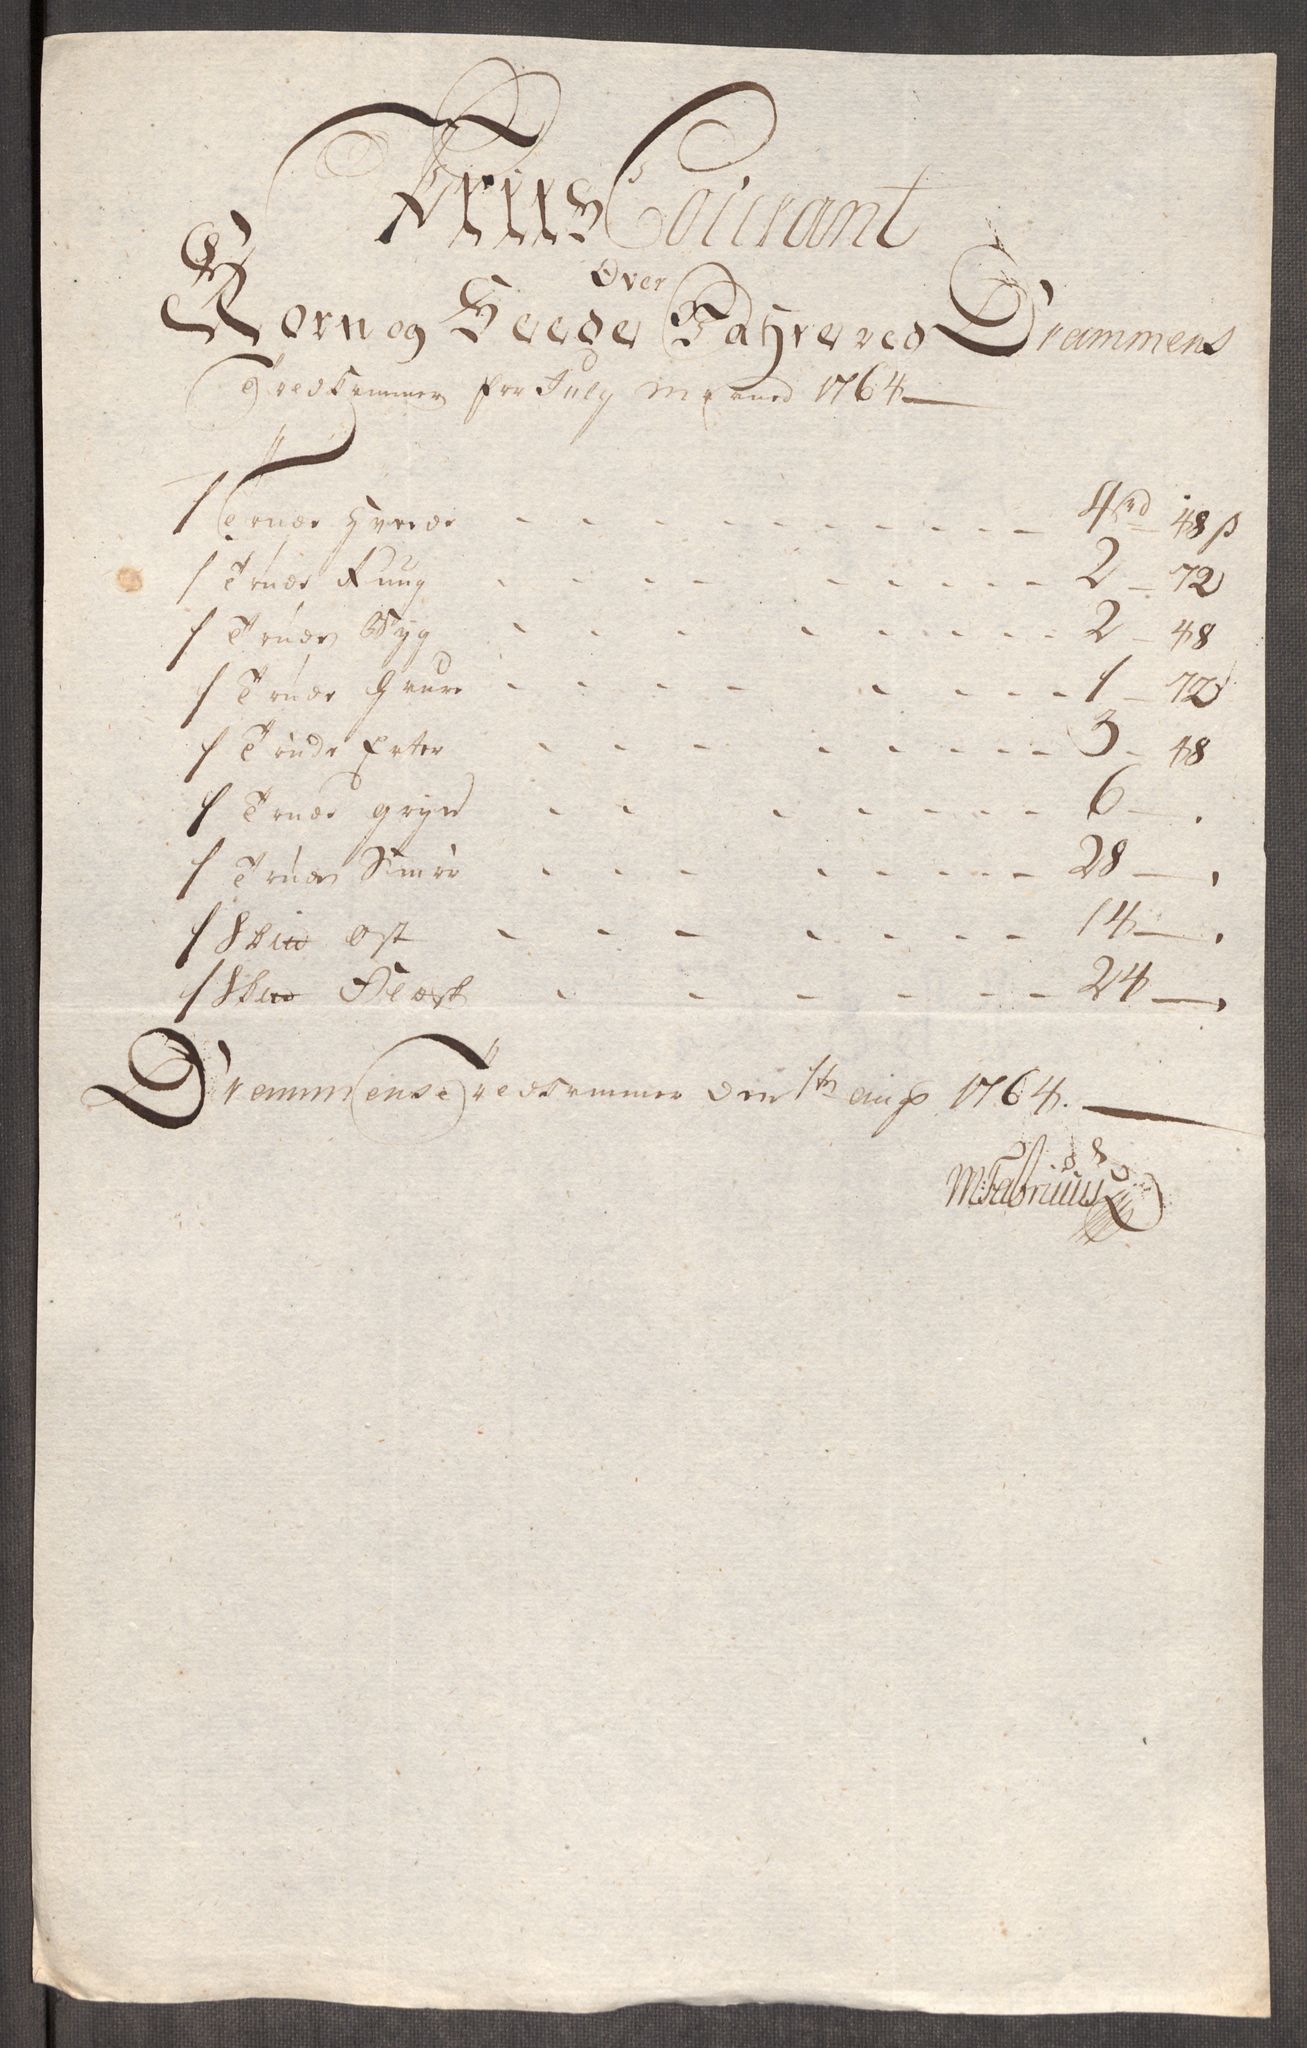 Priis Courant
Over
Korn og Feede Vahre ved Drammens
Tredkammer for July Maaned 1764
1 Tønde Hvede - - - 4 rd 48 ß
1 Tønde Ruug - - - 2 - 72
1 Tønde Byg - - - 2 - 48
1 Tønde Haure - - - 1 - 72
1 Tønde Erter - - - 3 - 48
1 Tønde gryn - - - 6 -
1 Tønde Smør - - - 28 -
1 Skud Ost - - - 14 -
1 Skud Flesk - - - 24 -
Drammens Tredkammer den 1te aug 1764.
M Fabritius